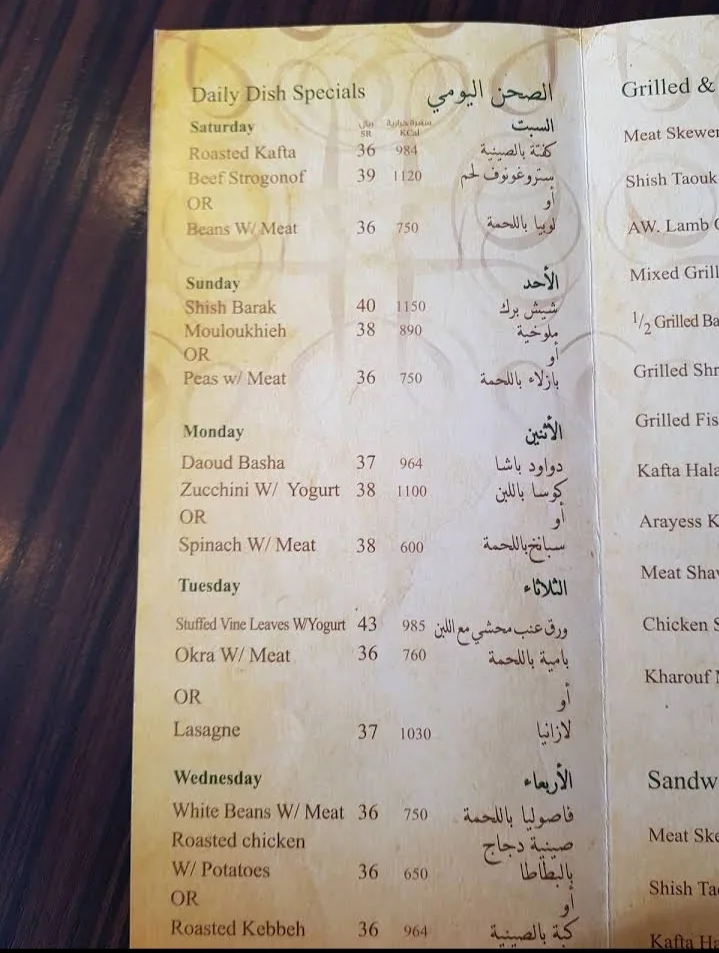 Daily Dish Specials الصحن اليومي
Saturday ريال سعرة حرارية السبت
SR KCal
Roasted Kafta 36 984 كفتة بالصينية
Beef Strogonof 39 1120 ستروغونوف لحم
OR أو
Beans W/ Meat 36 750 لوبيا باللحمة
Sunday الأحد
Shish Barak 40 1150 شيش برك
Mouloukhieh 38 890 ملوخية
OR أو
Peas w/ Meat 36 750 بازلاء باللحمة
Monday الأثنين
Daoud Basha 37 964 دواود باشا
Zucchini W/ Yogurt 38 1100 كوسا باللبن
OR أو
Spinach W/ Meat 38 600 سبانخ باللحمة
Tuesday الثلاثاء
Stuffed Vine Leaves W/Yogurt 43 985 ورق عنب محشي مع اللبن
Okra W/ Meat 36 760 بامية باللحمة
OR أو
Lasagne 37 1030 لازانيا
Wednesday الأربعاء
White Beans W/ Meat 36 750 فاصوليا باللحمة
Roasted chicken صينية دجاج
W/ Potatoes 36 650 بالبطاطا
OR أو
Roasted Kebbeh 36 964 كبة بالصينية
Grilled &
Meat Skewer
Shish Taouk
AW. Lamb
Mixed Grill
1/2 Grilled Ba
Grilled Shr
Grilled Fis
Kafta Hala
Arayess K
Meat Sha
Chicken S
Kharouf
Sandw
Meat Ske
Shish Ta
Kafta Ha